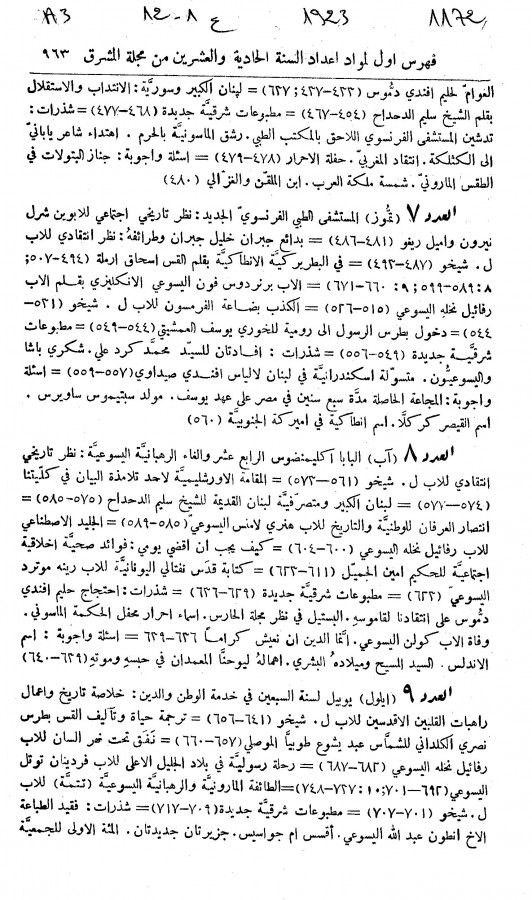 A3 12-1 ع 1923 1172
فهرس اول لمواد اعداد السنة الحادية والعشرين من مجلة المشرق ٩٦٣
الغوامّ لحليم افندي دمّوس (٤٢٣–٤٣٧ ;٦٢٧) = لبنان الكبير وسوريَّة: الانتداب والاستقلال
بقلم الشيخ سليم الدحداح (٤٥٤–٤٦٧) = مطبوعات شرقيَّة جديدة (٤٦٨–٤٧٧) = شذرات:
تدشين المستشفى الفرنسوي اللاحق بالمكتب الطبي. رشق الماسونيَّة بالحرم. اهتداء شاعر يابانيّ
الى الكثلكة. انتقاد المغربي. حفلة الاحرار (٤٧٨–٤٧٩) = اسئلة واجوبة: جناز البتولات في
الطقس المارونيّ. شمسة ملكة العرب. ابن المقفّن والغزالي (٤٨٠)
العدد ٧ (تمُّوز) المستشفى الطبي الفرنسويّ الجديد: نظر تاريخي اجتماعي للابوين شرل
نيرون واميل ريغو (٤٨١–٤٨٦) = بدائع جبران خليل جبران وطرائفهُ: نظر انتقادي للاب
ل. شيخو (٤٨٧–٤٩٣) = في البطريركيَّة الانطاكيَّة بقلم القس اسحاق ارملة (٤٩٤–٥٠٧;
٨ :٥٨٩–٥٩٩; ٩: ٦٦٠–٦٧١) = الاب برنردوس فون اليسوعي الانكليزي بقلم الاب
رفائيل نخله اليسوعي (٥١٥–٥٢٦) = الكذب بضاعة الفرمسون للاب ل. شيخو (٥٣١–
٥٤٤) = دخول بطرس الرسول الى رومية للخوري يوسف العمشيتي (٥٤٤–٥٤٩) = مطبوعات
شرقيَّة جديدة (٥٤٩–٥٥٦) = شذرات: افادتان للسيّد محمَّد كرد علي. شكري باشا
واليسوعيُّون. متسوّلة اسكندرانيَّة في لبنان لالياس افندي صيداوي (٥٥٧–٥٥٩) = اسئلة
واجوبة: المجاعة الحاصلة مدَّة سبع سنين في مصر على عهد يوسف. مولد سبتيموس ساويرس.
اسم القيصر كركلّا. اسم انطاكية في اميركة الجنوبيَّة (٥٦٠)
العدد ٨ (آب) البابا اكليمنضوس الرابع عشر والغاء الرهبانيَّة اليسوعيَّة: نظر تاريخي
انتقادي للاب ل. شيخو (٥٦١–٥٧٣) = المقامة الاورشليميَّة لاحد تلامذة البيان في كليّتنا
(٥٧٤–٥٧٧) = لبنان الكبير ومتصرّفيَّة لبنان القديمة للشيخ سليم الدحداح (٥٧٥–٥٨٥) =
انتصار العرفان للوطنيَّة والتاريخ للاب هنري لامنس اليسوعي (٥٨٥–٥٨٩) = الجليد الاصطناعي
للاب رفائيل نخله اليسوعي (٦٠٠–٦٠٤) = كيف يجب ان اقضي يومي: فوائد صحيَّة اخلاقية
اجتماعيَّة للحكيم امين الجميّل (٦١١–٦٢٢) = كتابة قدس نفتالي اليونانيَّة للاب رينه موترد
اليسوعيّ (٦٢٢) = مطبوعات شرقيَّة جديدة (٦٢٩–٦٣٦) = شذرات: احتجاج حليم افندي
دمّوس على انتقادنا لقاموسه. البستيل في نظر مجلة الحارس. اسماء احرار محفل الحكمة الماسوني.
وفاة الاب كولن اليسوعي. انّما الدين ان نعيش كراما (٦٣٦–٦٣٩) = اسئلة واجوبة : اسم
الاندلس. السيد المسيح وميلادهُ البشري. اهمالهُ ليوحنَّا المعمدان في حبسه وموته (٦٣٩–٦٤٠)
العدد ٩ (ايلول) يوبيل لسنة السبعين في خدمة الوطن والدين: خلاصة تاريخ واعمال
راهبات القلبين الاقدسين للاب ل. شيخو (٦٤١–٦٥٦) = ترجمة حياة وتآليف القس بطرس
نصري الكلداني للشمّاس عبد يشوع طوبيَّا الموصلي (٦٥٧–٦٦٠) = نَفَق تحت نهر السان للاب
رفائيل نخله اليسوعي (٦٨٢–٦٨٧) = رحلة رسوليَّة في بلاد الجليل الاعلى للاب فردينان توتل
اليسوعي (٦٩٢–٧٠١ ;١٠ :٧٢٧–٧٤٨) = الطائفة المارونيَّة والرهبانية اليسوعيَّة (تتمَّة) للاب
ل. شيخو (٧٠١–٧٠٧) = مطبوعات شرقيَّة جديدة (٧٠٩–٧١٧) = شذرات: فقيد الطباعة
الاخ انطون عبد الله اليسوعي. أفسس ام جواسيس. جزيرتان جديدتان. المئة الاولى للجمعيَّة